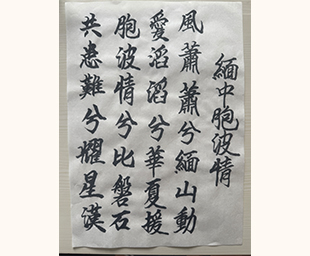 緬中胞波情
風蕭蕭兮緬山動
愛滔滔兮華夏援
胞波情兮比磐石
共患難兮耀星漢